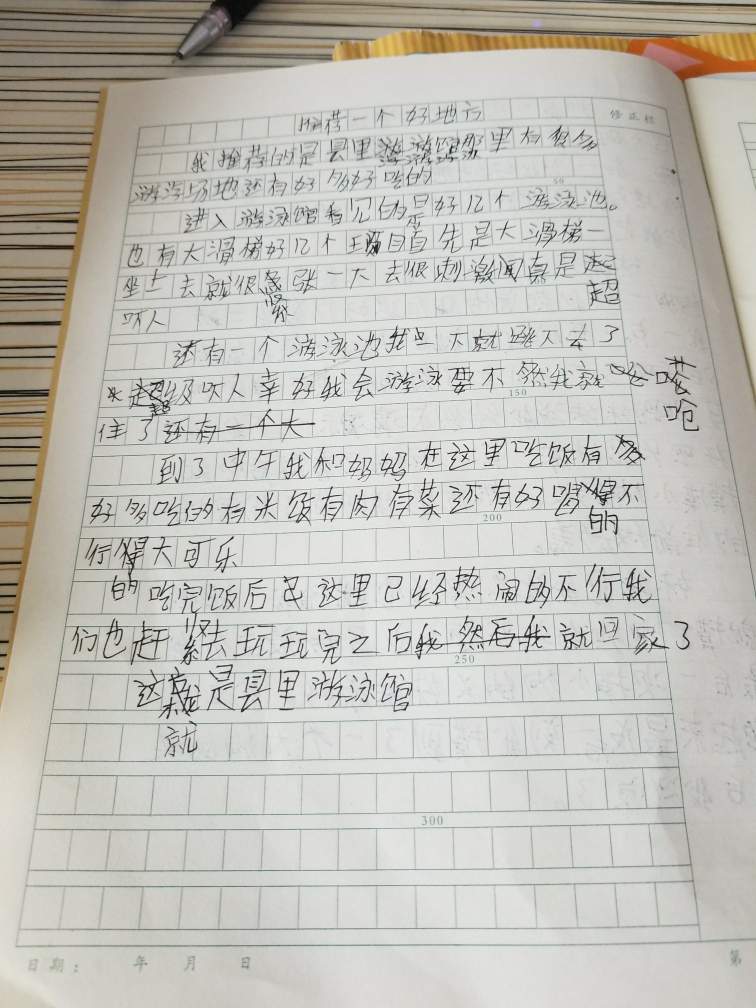 推荐一个好地方
修正栏
我推荐的是县里游泳馆那里有很多
游泳场地还有好多好吃的
50
进入游泳馆看见的是好几个游泳池。
也有大滑梯好几个项目首先是大滑梯一
坐上去就很紧张一下去很刺激闯真是超
吓人
还有一个游泳池我一下就跳下去了
超级吓人幸好我会游泳要不然我就呛
150
住了还有一个大
到了中午我和妈妈在这里吃饭有
好多吃的有米饭有肉有菜还有好喝的不
200
行的大可乐
吃完饭后这里已经热闹的不行我
们也赶紧去玩玩完之后我然后我就回家了
250
这就是县里游泳馆
300
日期： 年 月 日
第